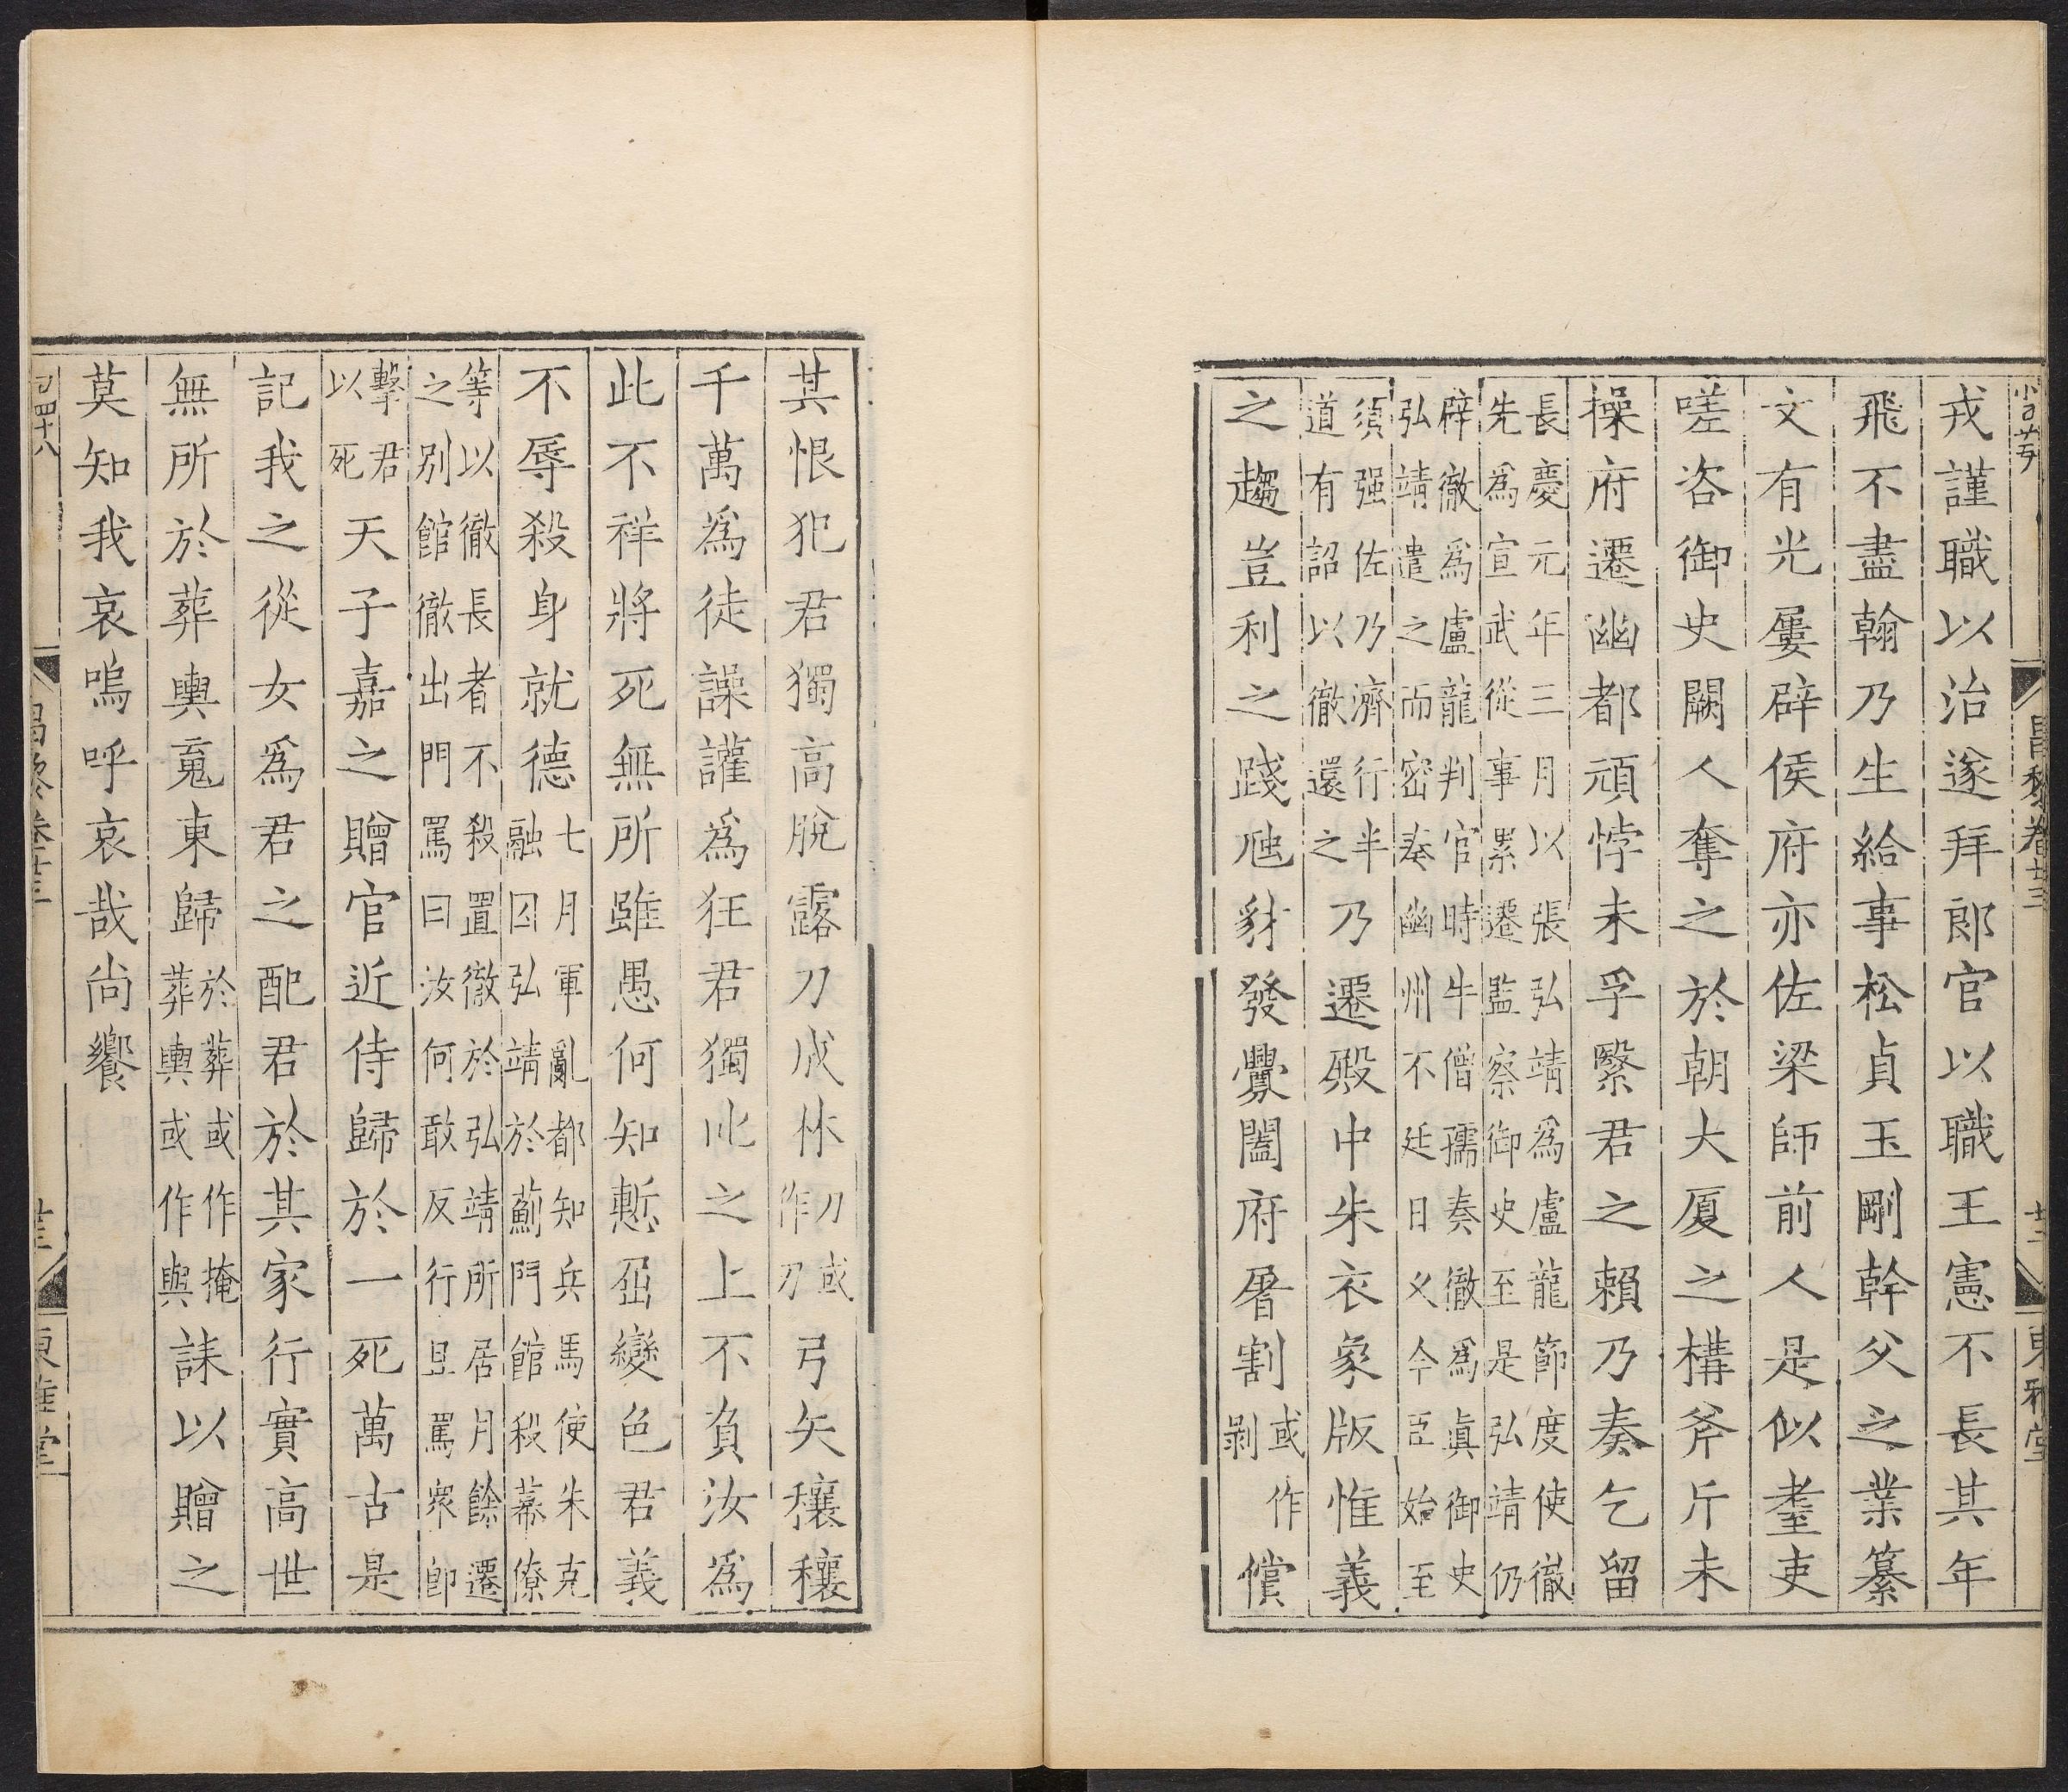 昌黎卷廿三
東雅堂
戎謹職以治遂拜郎官以職王憲不長其年
飛不盡翰乃生給事松貞玉剛幹父之業纂
文有光屢辟侯府亦佐梁師前人是似耋吏
嗟咨御史闕人奪之於朝大厦之構斧斤未
操府遷幽都頑悖未孚繄君之賴乃奏乞留
長慶元年三月以張弘靖為盧龍節度使徹
先為宣武從事累遷監察御史至是弘靖仍
辟徹為盧龍判官時牛僧孺奏徹為真御史
弘靖遣之而密奏幽州不廷日久今臣始至
須强佐乃濟行半
道有詔以徹還之
乃遷殿中朱衣象版惟義
之趨豈利之踐虺豺發釁闔府屠割
或作
剥
償
其恨犯君獨高脫露刀成林
刀或
作刃
弓矢穰穰
千萬為徒譟讙為狂君獨叱之上不負汝為
此不祥將死無所雖愚何知慙屈變色君義
不辱殺身就德
七月軍亂都知兵馬使朱克
融囚弘靖於薊門館殺幕僚
等以徹長者不殺置徹於弘靖所居月餘遷
之別館徹出門罵曰汝何敢反行且罵衆即
擊君
以死
天子嘉之贈官近侍歸於一死萬古是
記我之從女為君之配君於其家行實高世
無所於葬輿䰟東歸
於葬或作掩
葬輿或作與
誄以贈之
莫知我哀嗚呼哀哉尚饗
東雅堂